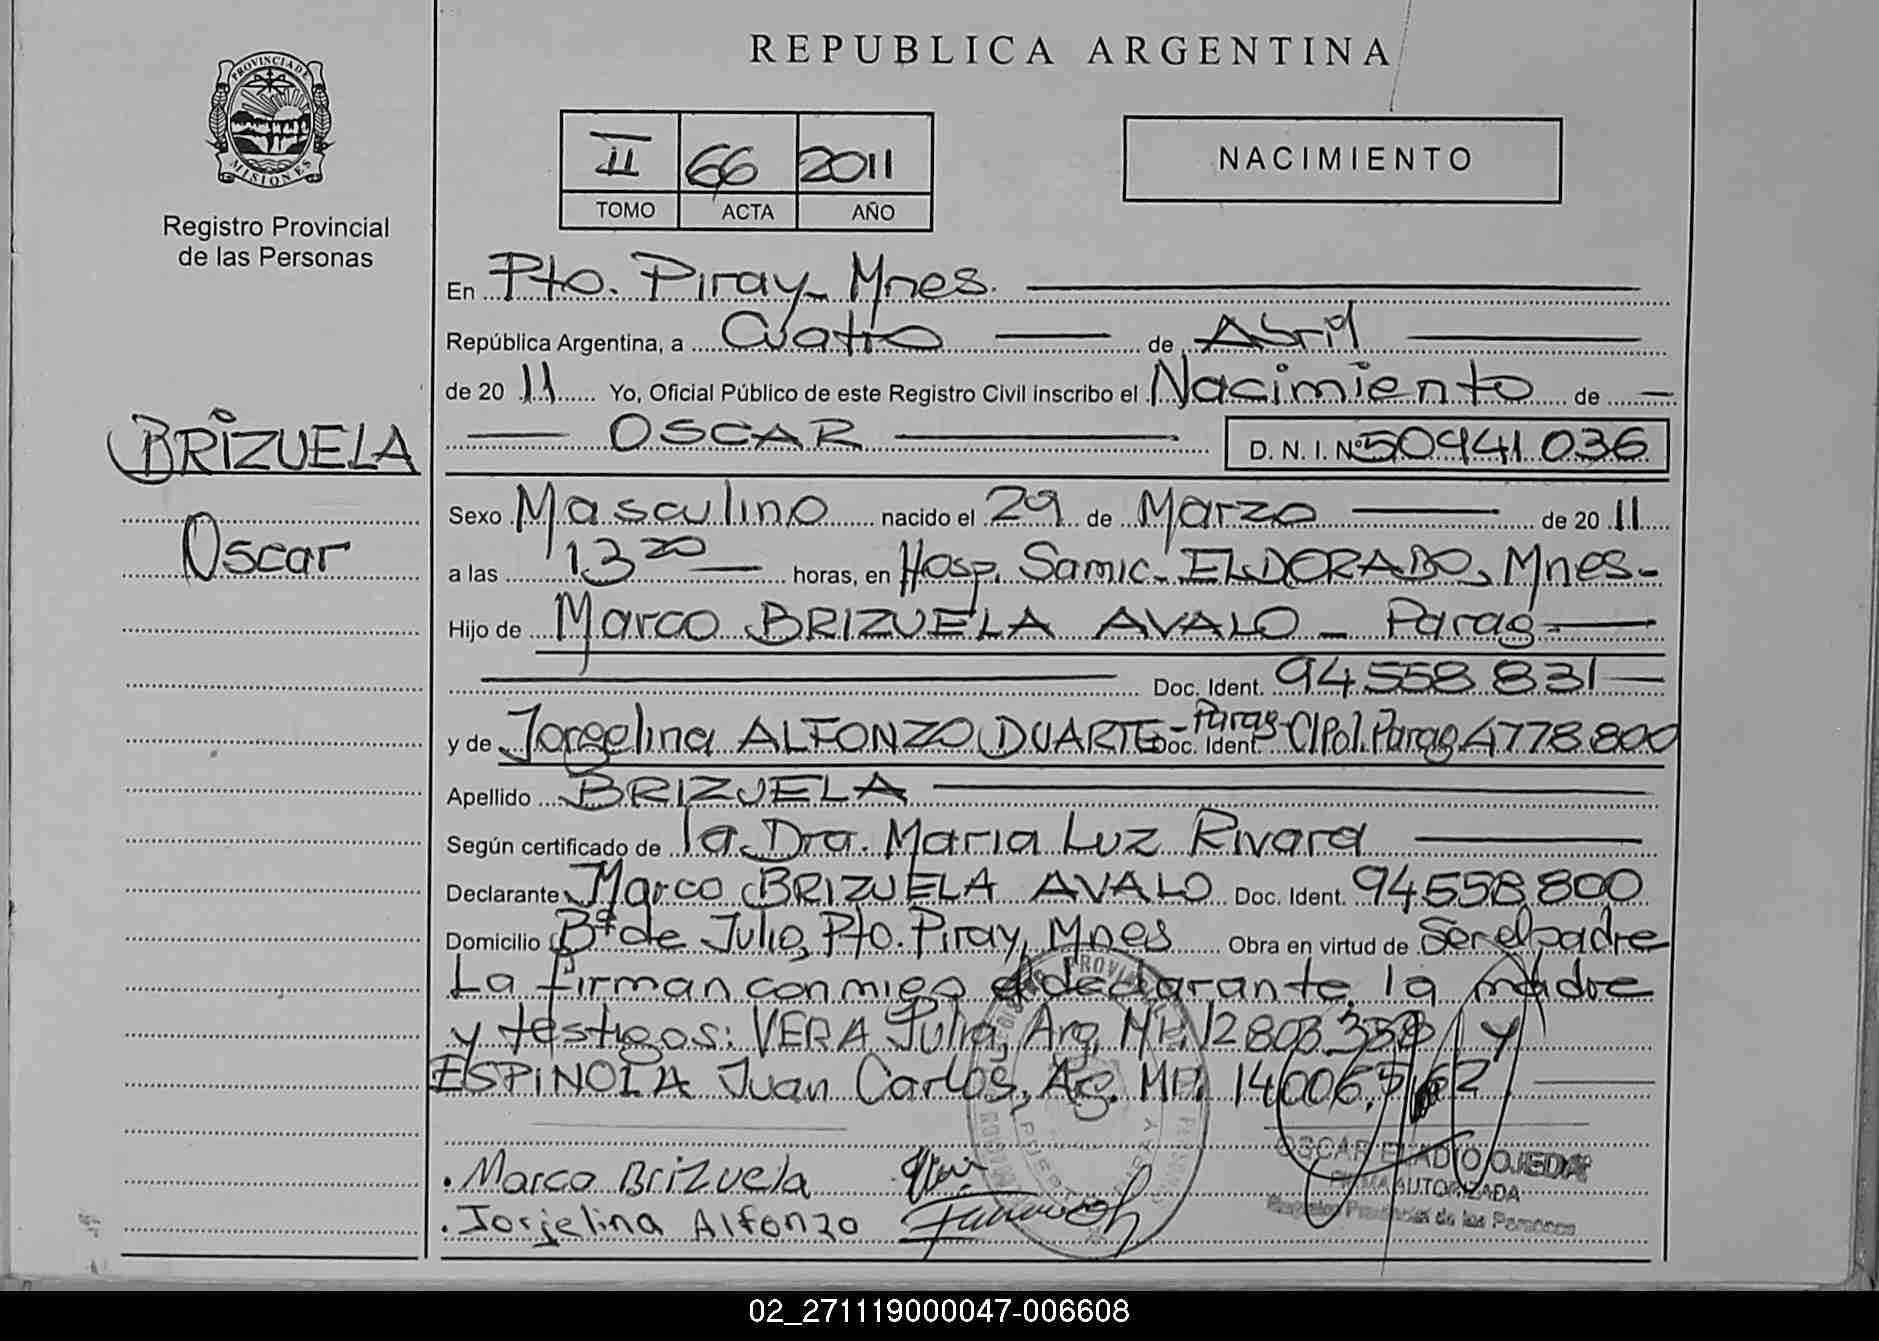 REPUBLICA ARGENTINA
PROVINCIA DE MISIONES
Registro Provincial
de las Personas
II 66 2011
TOMO ACTA AÑO
NACIMIENTO
En Pto. Piray_ Mnes.
República Argentina, a Cuatro de Abril
de 20 11 Yo, Oficial Público de este Registro Civil inscribo el Nacimiento de
BRIZUELA
Oscar
OSCAR D. N. I. Nº 50941036
Sexo Masculino nacido el 29 de Marzo de 20 11
a las 13 20 horas, en Hosp. Samic_ ELDORADO, Mnes-
Hijo de Marco BRIZUELA AVALO _ Parag-
Doc. Ident. 94.558 831
y de Jorgelina ALFONZO DUARTE- Parag- Doc. Ident. CI Pol. Parag 4778.800
Apellido BRIZUELA
Según certificado de la Dra. Maria Luz Rivara
Declarante Marco BRIZUELA AVALO Doc. Ident. 94.558.800
Domicilio Bº de Julio, Pto. Piray, Mnes Obra en virtud de Ser el padre
La firman conmigo el declarante, la madre
y testigos: VERA Julia, Arg, MI. 12 803 y
ESPINOLA Juan Carlos, Arg. MI. 14006.
. Marco Brizuela
. Jorjelina Alfonzo
OSCAR ELADIO OJEDA
FIRMA AUTORIZADA
Registro Provincial de las Personas
02_271119000047-006608